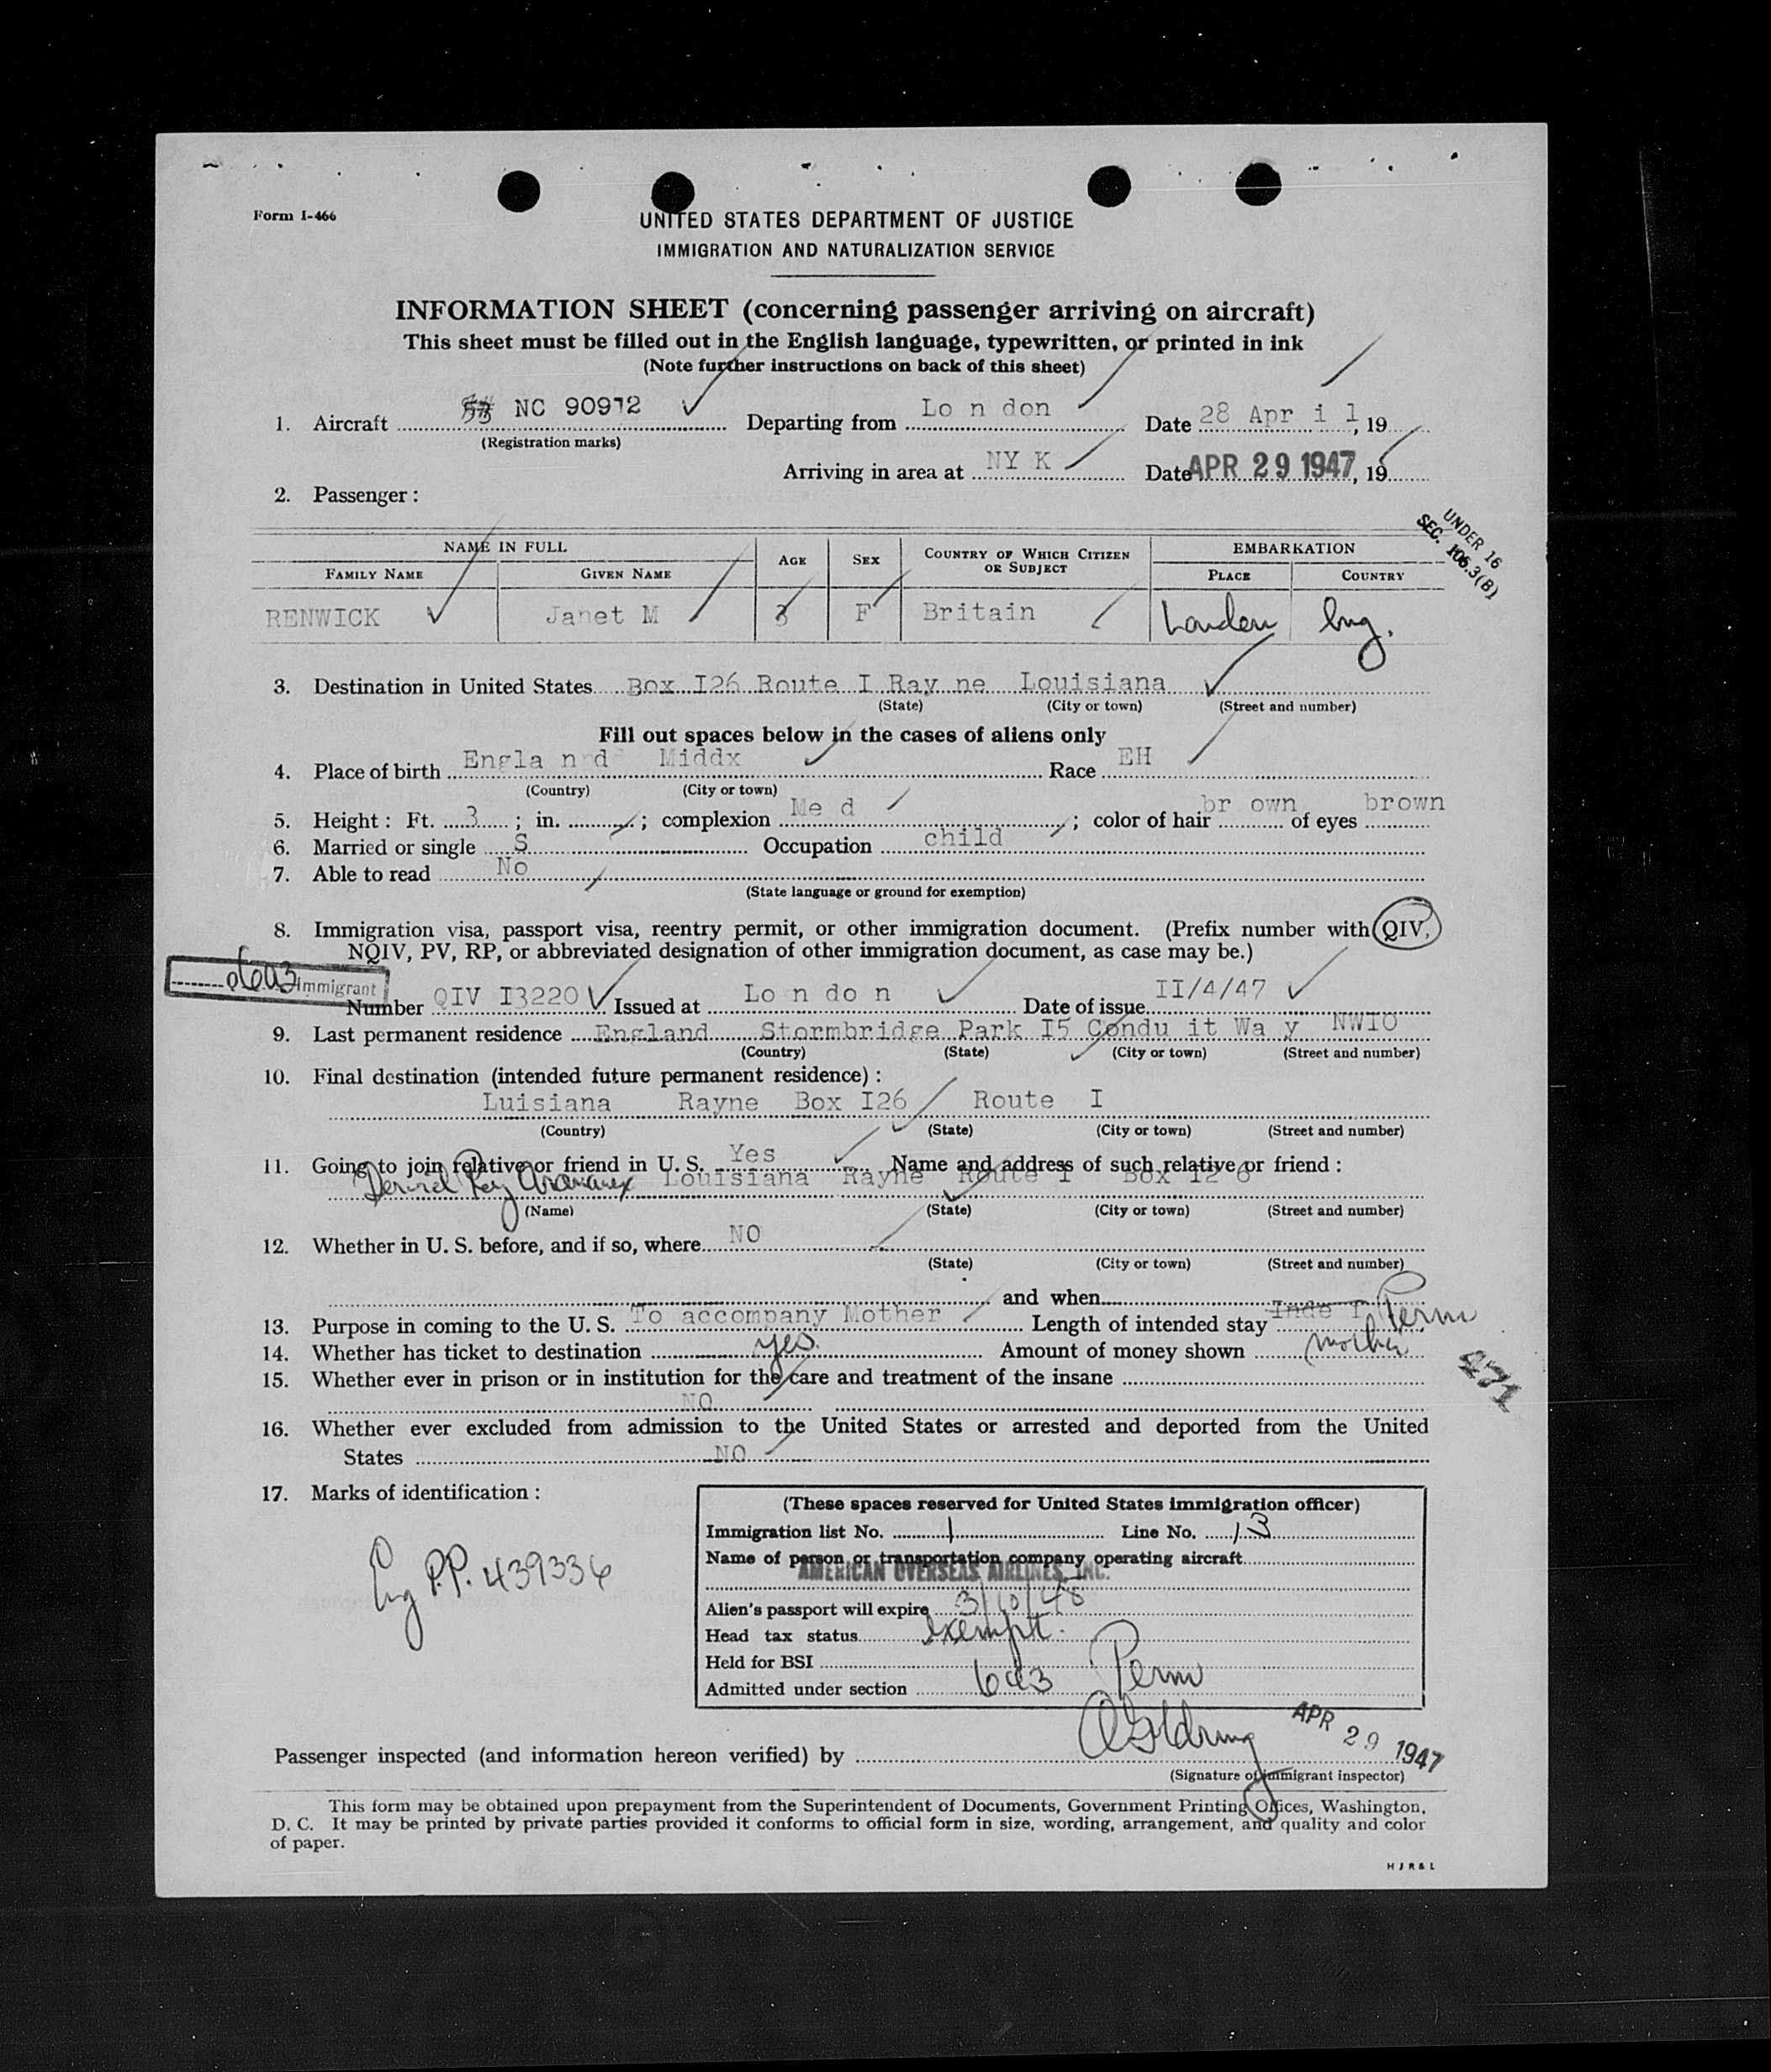 Form I-466
UNITED STATES DEPARTMENT OF JUSTICE
IMMIGRATION AND NATURALIZATION SERVICE
INFORMATION SHEET (concerning passenger arriving on aircraft)
This sheet must be filled out in the English language, typewritten, or printed in ink
(Note further instructions on back of this sheet)
1. Aircraft NC 90912 Departing from Lo n don Date 28 Apr i l, 19
(Registration marks)
Arriving in area at NY K Date APR 29 1947, 19
2. Passenger:
UNDER 16
SEC. 106.3(B)
NAME IN FULL AGE SEX COUNTRY OF WHICH CITIZEN OR SUBJECT EMBARKATION
FAMILY NAME GIVEN NAME PLACE COUNTRY
RENWICK Janet M 3 F Britain London Eng.
3. Destination in United States Box I26 Route I Ray ne Louisiana
(State) (City or town) (Street and number)
Fill out spaces below in the cases of aliens only
4. Place of birth Engla n d Middx Race EH
(Country) (City or town)
5. Height: Ft. 3; in. ; complexion Me d; color of hair br own of eyes brown
6. Married or single S Occupation child
7. Able to read No
(State language or ground for exemption)
8. Immigration visa, passport visa, reentry permit, or other immigration document. (Prefix number with QIV,
NQIV, PV, RP, or abbreviated designation of other immigration document, as case may be.)
6a3 Immigrant
Number QIV I3220 Issued at Lo n do n Date of issue II/4/47
9. Last permanent residence England Stormbridge Park I5 Condu it Wa y NWIO
(Country) (State) (City or town) (Street and number)
10. Final destination (intended future permanent residence):
Luisiana Rayne Box I26 Route I
(Country) (State) (City or town) (Street and number)
11. Going to join relative or friend in U. S. Yes Name and address of such relative or friend:
Ray Louisiana Rayne Route I Box I2 6
(Name) (State) (City or town) (Street and number)
12. Whether in U. S. before, and if so, where NO
(State) (City or town) (Street and number)
and when
13. Purpose in coming to the U. S. To accompany Mother Length of intended stay Perm
14. Whether has ticket to destination yes. Amount of money shown mother
15. Whether ever in prison or in institution for the care and treatment of the insane
NO
16. Whether ever excluded from admission to the United States or arrested and deported from the United
States NO
17. Marks of identification:
Eng P.P. 439336
(These spaces reserved for United States immigration officer)
Immigration list No. 1 Line No. 13
Name of person or transportation company operating aircraft
AMERICAN OVERSEAS AIRLINES, INC.
Alien's passport will expire 3/10/48
Head tax status exempt.
Held for BSI
Admitted under section 6a3 Perm
APR 29 1947
Passenger inspected (and information hereon verified) by
(Signature of immigrant inspector)
This form may be obtained upon prepayment from the Superintendent of Documents, Government Printing Offices, Washington,
D. C. It may be printed by private parties provided it conforms to official form in size, wording, arrangement, and quality and color
of paper.
H J R & L